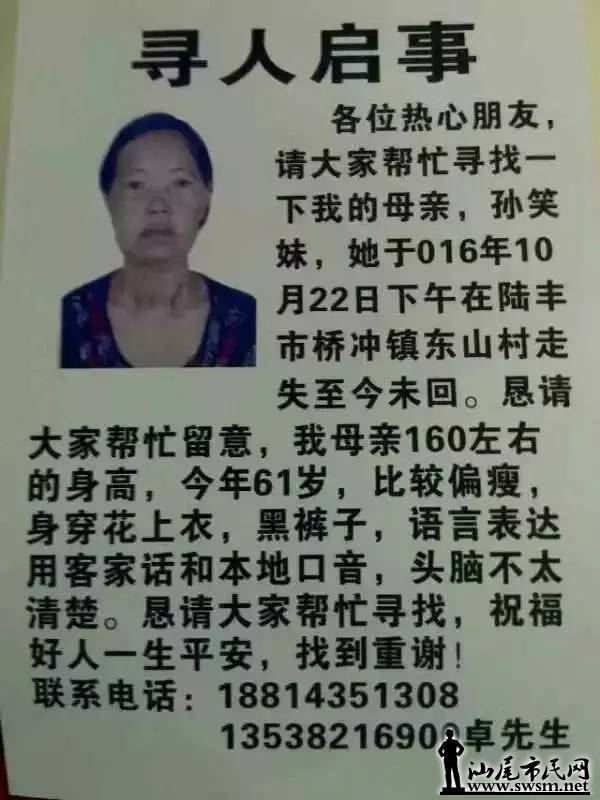 寻人启事
各位热心朋友，
请大家帮忙寻找一
下我的母亲，孙笑
妹，她于016年10
月22日下午在陆丰
市桥冲镇东山村走
失至今未回。恳请
大家帮忙留意，我母亲160左右
的身高，今年61岁，比较偏瘦，
身穿花上衣，黑裤子，语言表达
用客家话和本地口音，头脑不太
清楚。恳请大家帮忙寻找，祝福
好人一生平安，找到重谢！
联系电话：18814351308
13538216900卓先生
汕尾市民网
www.swsm.net